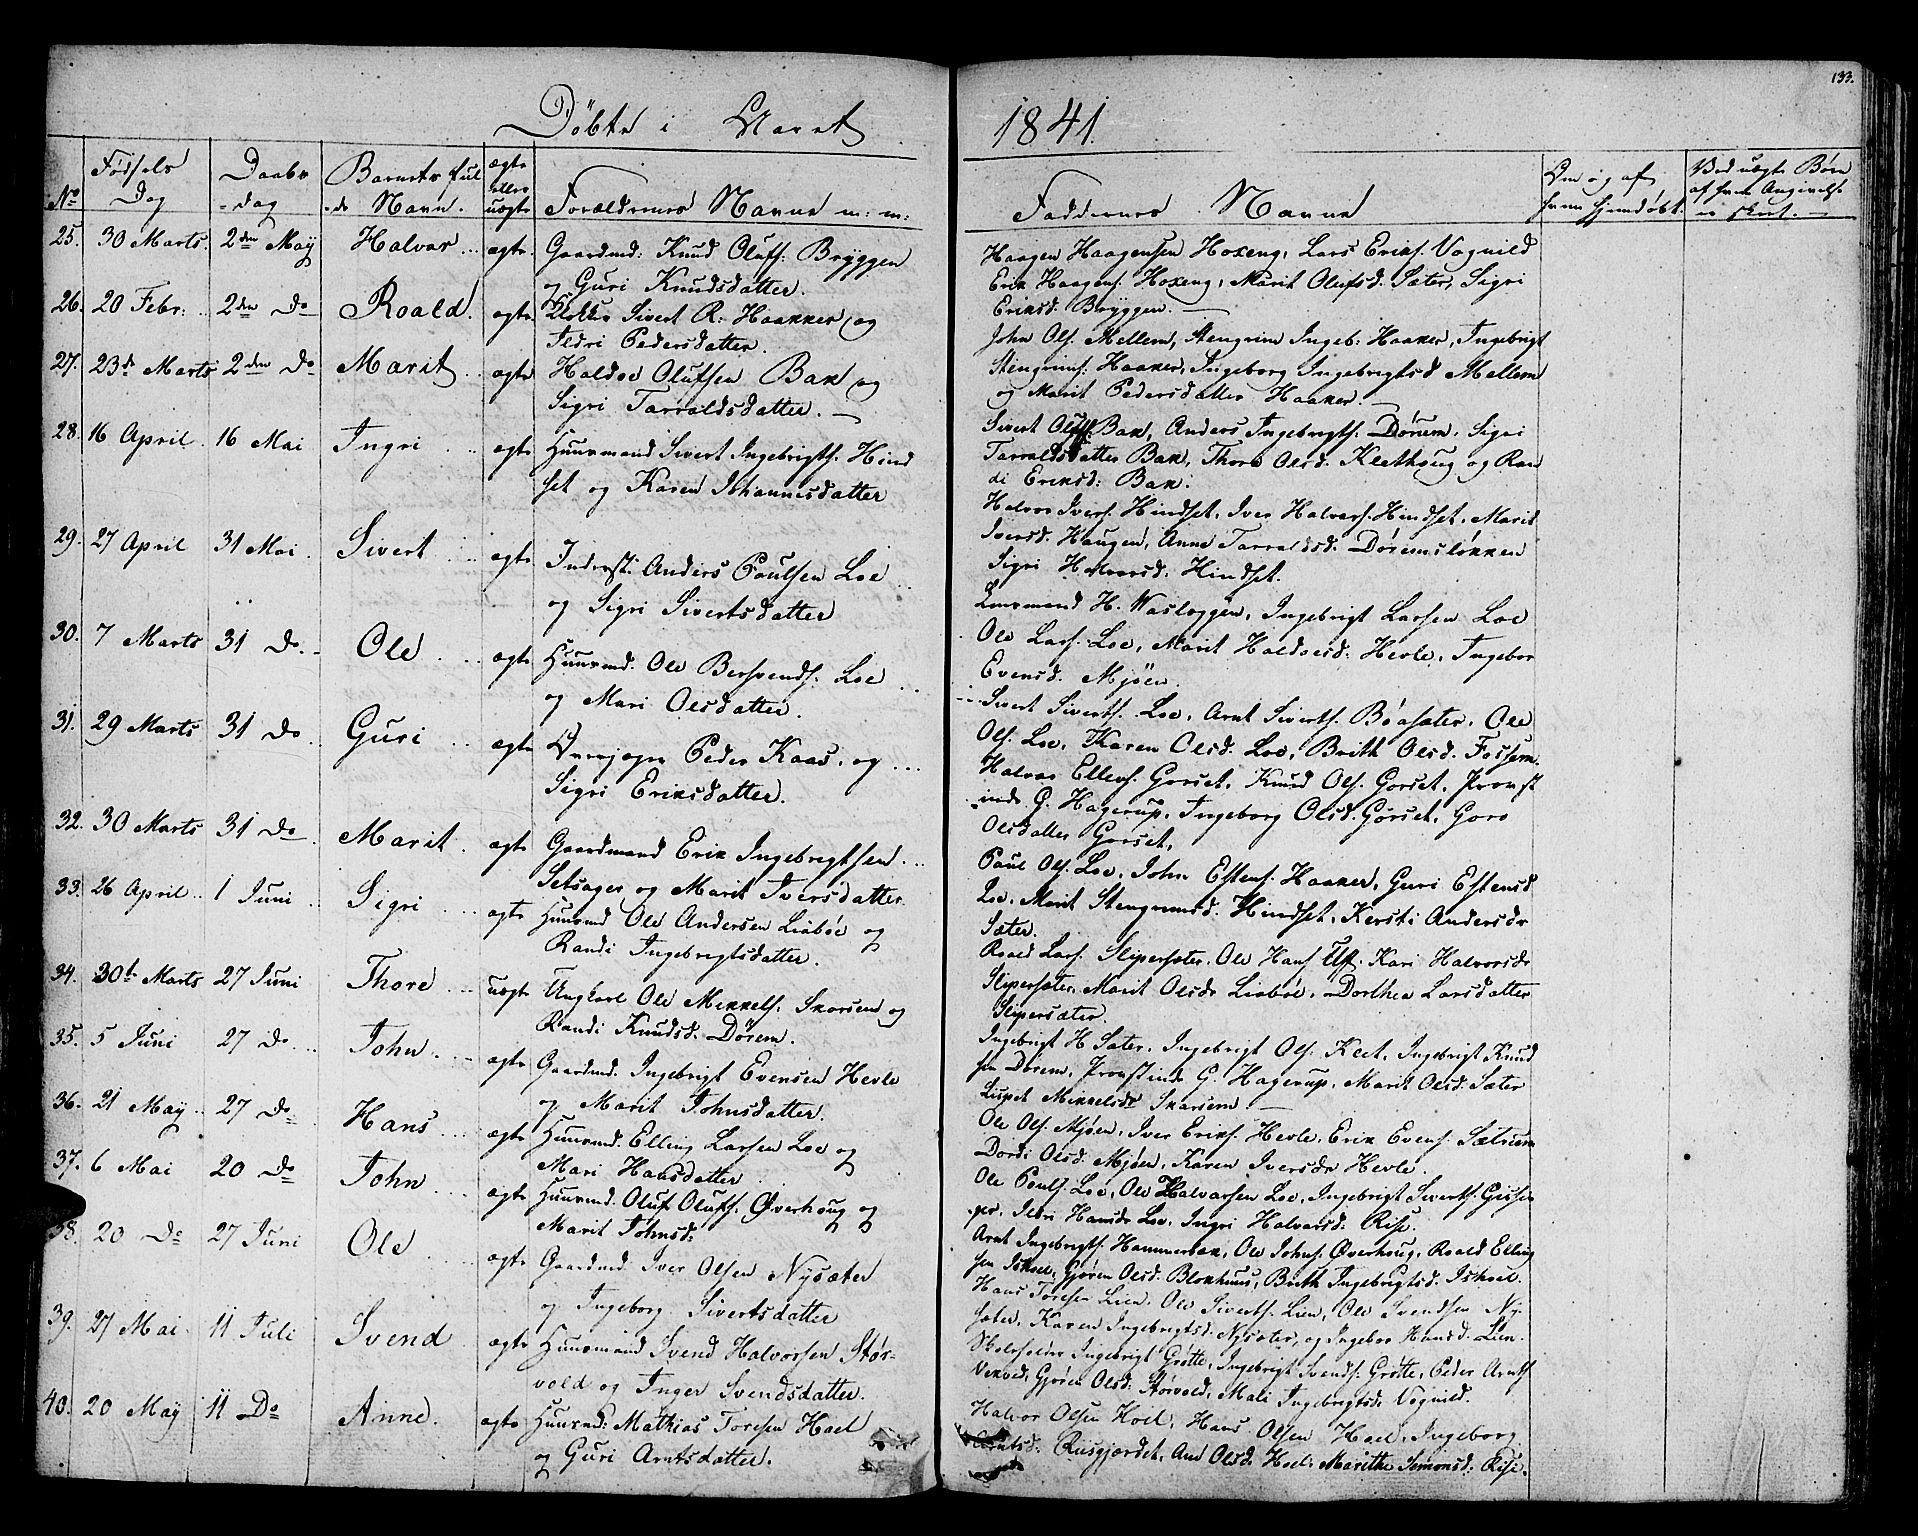 133.
Döbte i Aaret 1841.
No
Fødsels Dag
Daabs-dag
Barnets fulde Navn.
ægte eller uægte
Forældrenes Navne m: m:
Faddernes Navne
Om og af hvem hjemdøbt.
Ved uægte Børn af hvem Angivelse er skeet.
25. 30 Marts. 2den Maÿ Halvor ægte Gaardmd: Knud Olufs. Brÿggen
og Guri Knudsdatter.
Haagen Haagensen Hoxeng, Lars Eriks. Vognild
Erik Haagens. Hoxeng, Marit Olufsd. Sæter, Sigri
Eriksd. Brÿggen.
26. 20 Febr: 2den Do Roald. ægte Klokker Sivert R. Haakker og
Ildri Pedersdatter.
John Ols. Mellem, Stengrim Ingeb. Haaker, Ingebrigt
Stengrims. Haaker, Ingeborg Ingebrigtsd Mellem
og Marit Pedersdatter Haaker.
27. 23de Marts 2den Do Marit ægte Haldoe Olufsen Bak og
Sigri Tarraldsdatter.
Sivert Olufs. Bak, Anders Ingebrigts. Dørum, Sigri
Tarraldsdatter Bak, Thore Olsd. Kletthoug og Ran
di Eriksd: Bak.
28. 16 April 16 Mai Ingri ægte Huusmand Sivert Ingebrigts. Hind
set og Karen Johannisdatter
Halvor Ivers. Hindset, Iver Halvors. Hindset, Marit
Iversd. Haugen, Anne Tarraldsd. Døremsløkken
Sigri Halvorsd. Hindset.
29. 27 April 31 Mai Sivert ægte Inderst: Anders Poulsen Loe
og Sigri Sivertsdatter
Lensmand H. Wasloggen, Ingebrigt Larsen Loe
Ole Lars. Loe, Marit Haldoesd. Hevle, Ingebor
Evensd. Mjöen.
30. 7 Marts 31 Do Ole ægte Huusmd. Ole Bersvends. Loe
og Mari Olsdatter.
Sivert Siverts. Loe, Arnt Siverts. Böasæter, Ole
Ols. Loe, Karen Olsd. Loe, Brith Olsd. Fossem.
31. 29 Marts 31 Do Guri ægte Peder Kaas, og
Sigri Eriksdatter.
Halvor Ellevs. Gorset, Knud Ols. Gorset, Provst
inde G. Hagerup, Ingeborg Olsd. Gorset, Goro
Olsdatter Gorset,
32. 30 Marts 31 Do Marit ægte Gaardmand Erik Ingebrigtsen
Setsager og Marit Iversdatter
Poul Ols. Loe, John Estens. Haaker, Guri Estensd
Loe, Marit Stengrimsd. Hindset, Kersti Andersdr
Sæter.
33. 26 April 1 Juni Sigri ægte Huusmd Ole Andersen Liabøe og
Randi Ingebrigtsdatter.
Roald Lars. Slipersæter, Ole Hans. Kari Halvorsdr
Slipersæter, Marit Olsdr Liabøe, Dorthea Larsdatter
Slipersæter.
34. 30t Marts 27 Juni Thore uægte Ungkarl Ole Mikkels. Skorsem og
Randi Knudsd. Dørem.
Ingebrigt H Sæter, Ingebrigt Ols. Kleet, Ingebrigt Knud
sen Dørem, Provstinde G. Hagerup, Marit Olsd. Sæter
Mikkelsdr Skarsem.
35. 5 Juni 27 Do John. ægte Gaardmd. Ingebrigt Evensen Hevle
og Marit Johnsdatter.
Ole Ols. Mjøen, Iver Eriks. Hevle, Erik Evens. Sætrum
Dordi Olsd. Mjøen, Karen Iversdr Hevle.
36. 21 Maÿ 27 Do Hans ægte Huusmd. Elling Larsen Loe og
Mari Hansdatter
Ole Pouls. Loe, Ole Halvorsen Loe, Ingebrigt Siverts.
Ildri Hansdr Loe, Ingri Halvorsd. Rise.
37. 6 Mai 20 Do John ægte Huusmd. Oluf Olufs. Øverhoug og
Marit Johnsd:
Arnt Ingebrigts. Hammerbak, Ole Johns. Øverhoug, Roald Elling
sen Ishoel, Gjøren Olsd. Blokhuus, Brith Ingebrigtsd. Ishoel.
38. 20 Do 27 Juni Ole ægte Gaardmd Iver Olsen Nÿsæter
og Ingeborg Sivertsdatter
Hans Toresen Lien, Ole Siverts. Lien, Ole Svendsen Nÿ-
sæter, Karen Ingebrigtsd. Nysæter, og Ingebor Hansd. Lien.
39. 27 Mai. 11 Juli Svend ægte Huusmand Svend Halvorsen Stør-
vold og Inger Svendsdatter.
Skoleholder Ingebrigt Grøtte, Ingebrigt Svends. Grøtte, Peder Arnts
Gjøren Olsd. Størvold, Mali Ingebrigtsd. Vognild.
40. 20 Maÿ 11 Do Anne. ægte Huusmd: Mathias Toresen Hoel
og Guri Arntsdatter.
Halvor Olsen Hoel, Hans Olsen Hoel, Ingeborg
Arntsd. Riisgjærdet, Ane Olsd. Hoel, Marithe Simonsd. Rise.